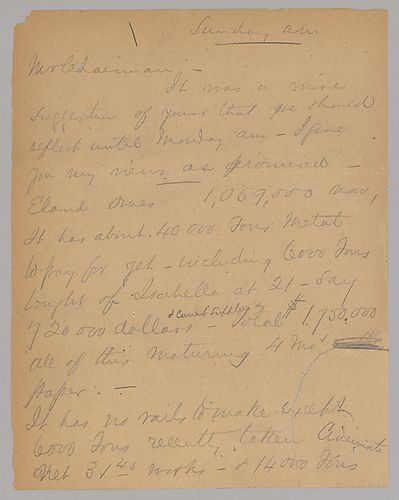 Sunday am
Mr Chairman; -
It was a wise
suggestion of yours that we should
reflect until Monday am - I give
you my views as promised -
Eland owes 1,059,000 now,
It has about 40 000 Tons Metal
to pay for yet - including 6000 Tons
bought of Isabella at 21 - say
720 000 dollars - Total $ 1,750.000
& Current Supplies
all of this maturing 4 Mos
paper. -
It has no rails to make except
6000 Tons recently taken Cincinnati
Net 31 40 works - & 14000 Tons